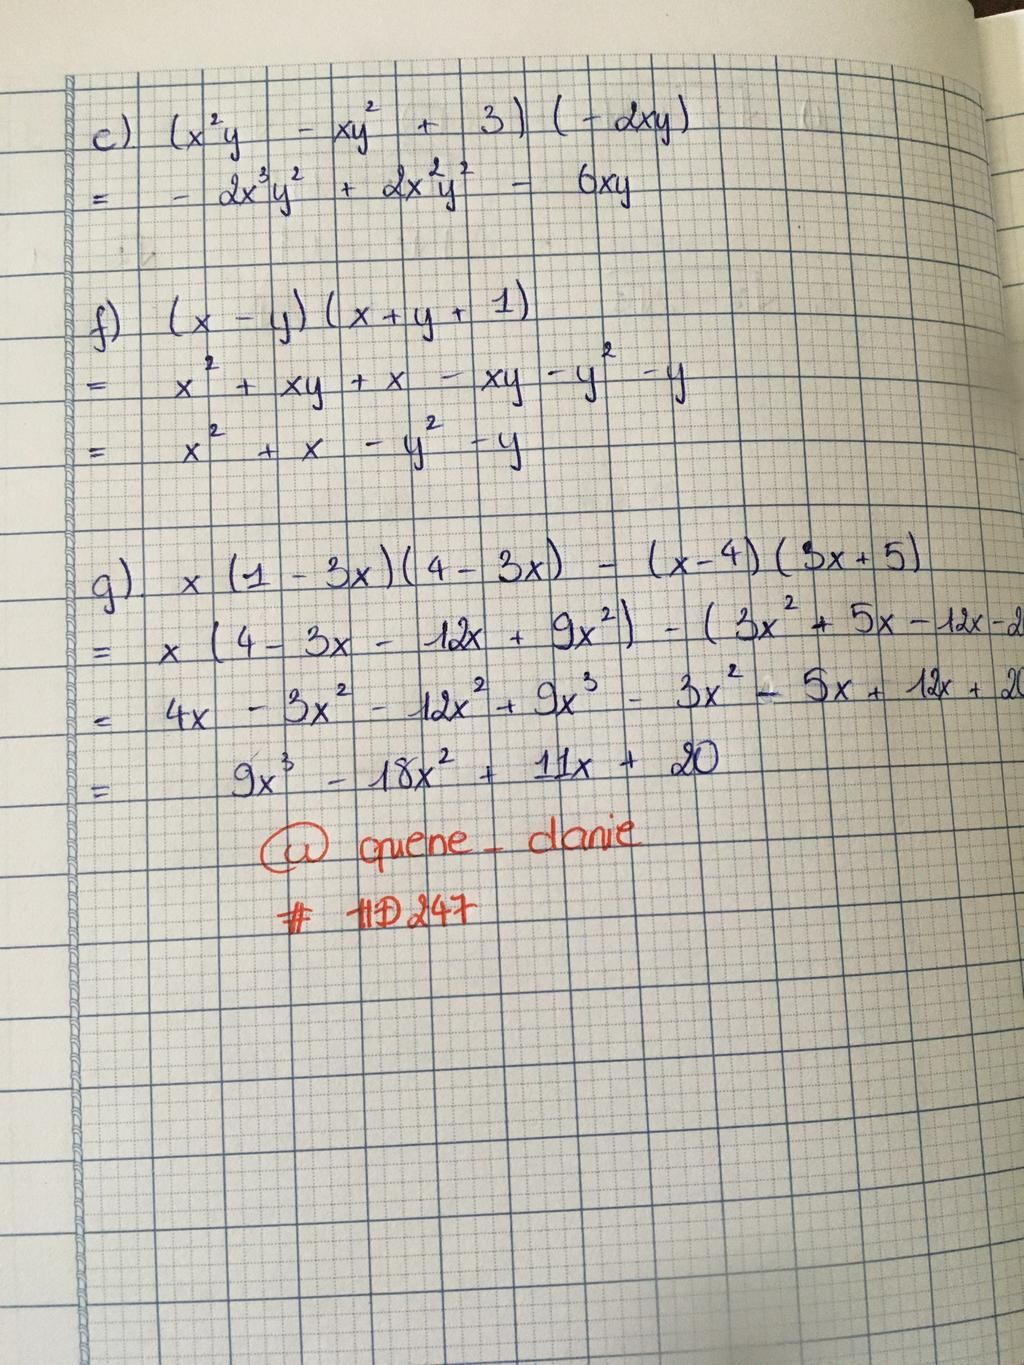 c) (x²y - xy² + 3) (- 2xy)
= - 2x³y² + 2x²y² - 6xy
f) (x - y) (x + y + 1)
= x² + xy + x - xy - y² - y
= x² + x - y² - y
g) x (1 - 3x) (4 - 3x) - (x - 4) (3x + 5)
= x (4 - 3x - 12x + 9x²) - (3x² + 5x - 12x - 2
= 4x - 3x² - 12x² + 9x³ - 3x² - 5x + 12x + 20
= 9x³ - 18x² + 11x + 20
# HD247